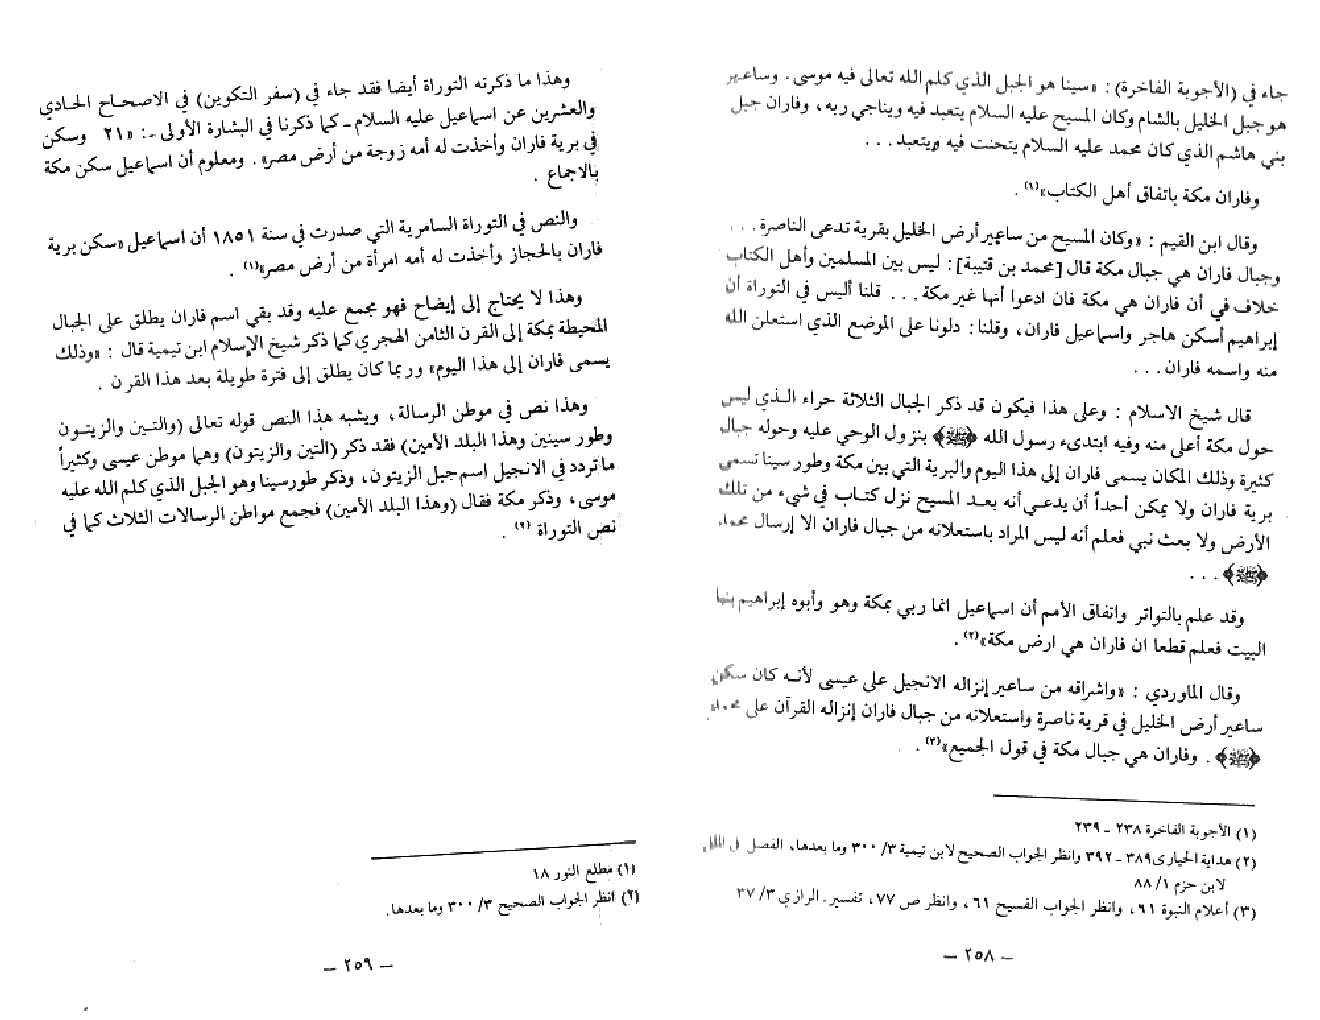 جاء في (الأجوبة الفاخرة) : «سينا هو الجبل الذي كلم الله تعالى فيه موسى . وساعير
هو جبل الخليل بالشام وكان المسيح عليه السلام يتعبد فيه ويناجي ربه ، وفاران جبل
بني هاشم الذي كان محمد عليه السلام يتحنث فيه ويتعبد . . .
وفاران مكة باتفاق أهل الكتاب»(١) .
وقال ابن القيم : «وكان المسيح من ساعير أرض الخليل بقرية تدعى الناصرة . . .
وجبال فاران هي جبال مكة قال [محمد بن قتيبة] : ليس بين المسلمين وأهل الكتاب
خلاف في أن فاران هي مكة فان ادعوا أنها غير مكة . . . قلنا أليس في التوراة أن
إبراهيم أسكن هاجر واسماعيل فاران ، وقلنا : دلونا على الموضع الذي استعلن الله
منه واسمه فاران . . .
قال شيخ الاسلام : وعلى هذا فيكون قد ذكر الجبال الثلاثة حراء الذي ليس
حول مكة أعلى منه وفيه ابتدىء رسول الله ﴿ﷺ﴾ بنزول الوحي عليه وحوله جبال
كثيرة وذلك المكان يسمى فاران إلى هذا اليوم والبرية التي بين مكة وطور سينا تسمى
برية فاران ولا يمكن أحداً أن يدعي أنه بعد المسيح نزل كتاب في شيء من تلك
الأرض ولا بعث نبي فعلم أنه ليس المراد باستعلانه من جبال فاران الا إرسال محمد
﴿ﷺ﴾ . . .
وقد علم بالتواتر واتفاق الأمم أن اسماعيل انما ربي بمكة وهو وأبوه إبراهيم بنيا
البيت فعلم قطعا ان فاران هي ارض مكة»(٢) .
وقال الماوردي : «واشراقه من ساعير إنزاله الانجيل على عيسى لأنه كان سكن
ساعير أرض الخليل في قرية ناصرة واستعلانه من جبال فاران إنزاله القرآن على محمد
﴿ﷺ﴾ . وفاران هي جبال مكة في قول الجميع»(٣) .
(١) الأجوبة الفاخرة ٢٣٨ ـ ٢٣٩
(٢) هداية الحيارى ٣٨٩ ـ ٣٩٢ وانظر الجواب الصحيح لابن تيمية ٣/ ٣٠٠ وما بعدها، الفصل في الملل
لابن حزم ١/ ٨٨
(٣) أعلام النبوة ٩١ ، وانظر الجواب الفسيح ٦١ ، وانظر ص ٧٧ ، تفسير الرازي ٣/ ٣٧
ـ ٢٥٨ ـ
وهذا ما ذكرته التوراة أيضا فقد جاء في (سفر التكوين) في الاصحاح الحادي
والعشرين عن اسماعيل عليه السلام ـ كما ذكرنا في البشارة الأولى ـ : «٢١ وسكن
في برية فاران وأخذت له أمه زوجة من أرض مصر» . ومعلوم أن اسماعيل سكن مكة
بالاجماع .
والنص في التوراة السامرية التي صدرت في سنة ١٨٥١ أن اسماعيل «سكن برية
فاران بالحجاز وأخذت له أمه امرأة من أرض مصر»(١) .
وهذا لا يحتاج إلى إيضاح فهو مجمع عليه وقد بقي اسم فاران يطلق على الجبال
المحيطة بمكة إلى القرن الثامن الهجري كما ذكر شيخ الإسلام ابن تيمية قال : «وذلك
يسمى فاران إلى هذا اليوم» وربما كان يطلق إلى فترة طويلة بعد هذا القرن .
وهذا نص في موطن الرسالة ، ويشبه هذا النص قوله تعالى (والتين والزيتون
وطور سينين وهذا البلد الأمين) فقد ذكر (التين والزيتون) وهما موطن عيسى وكثيراً
ما تردد في الانجيل اسم جبل الزيتون ، وذكر طور سينا وهو الجبل الذي كلم الله عليه
موسى ، وذكر مكة فقال (وهذا البلد الأمين) فجمع مواطن الرسالات الثلاث كما في
نص التوراة (٢) .
(١) مطلع النور ١٨
(٢) انظر الجواب الصحيح ٣/ ٣٠٠ وما بعدها.
ـ ٢٥٩ ـ